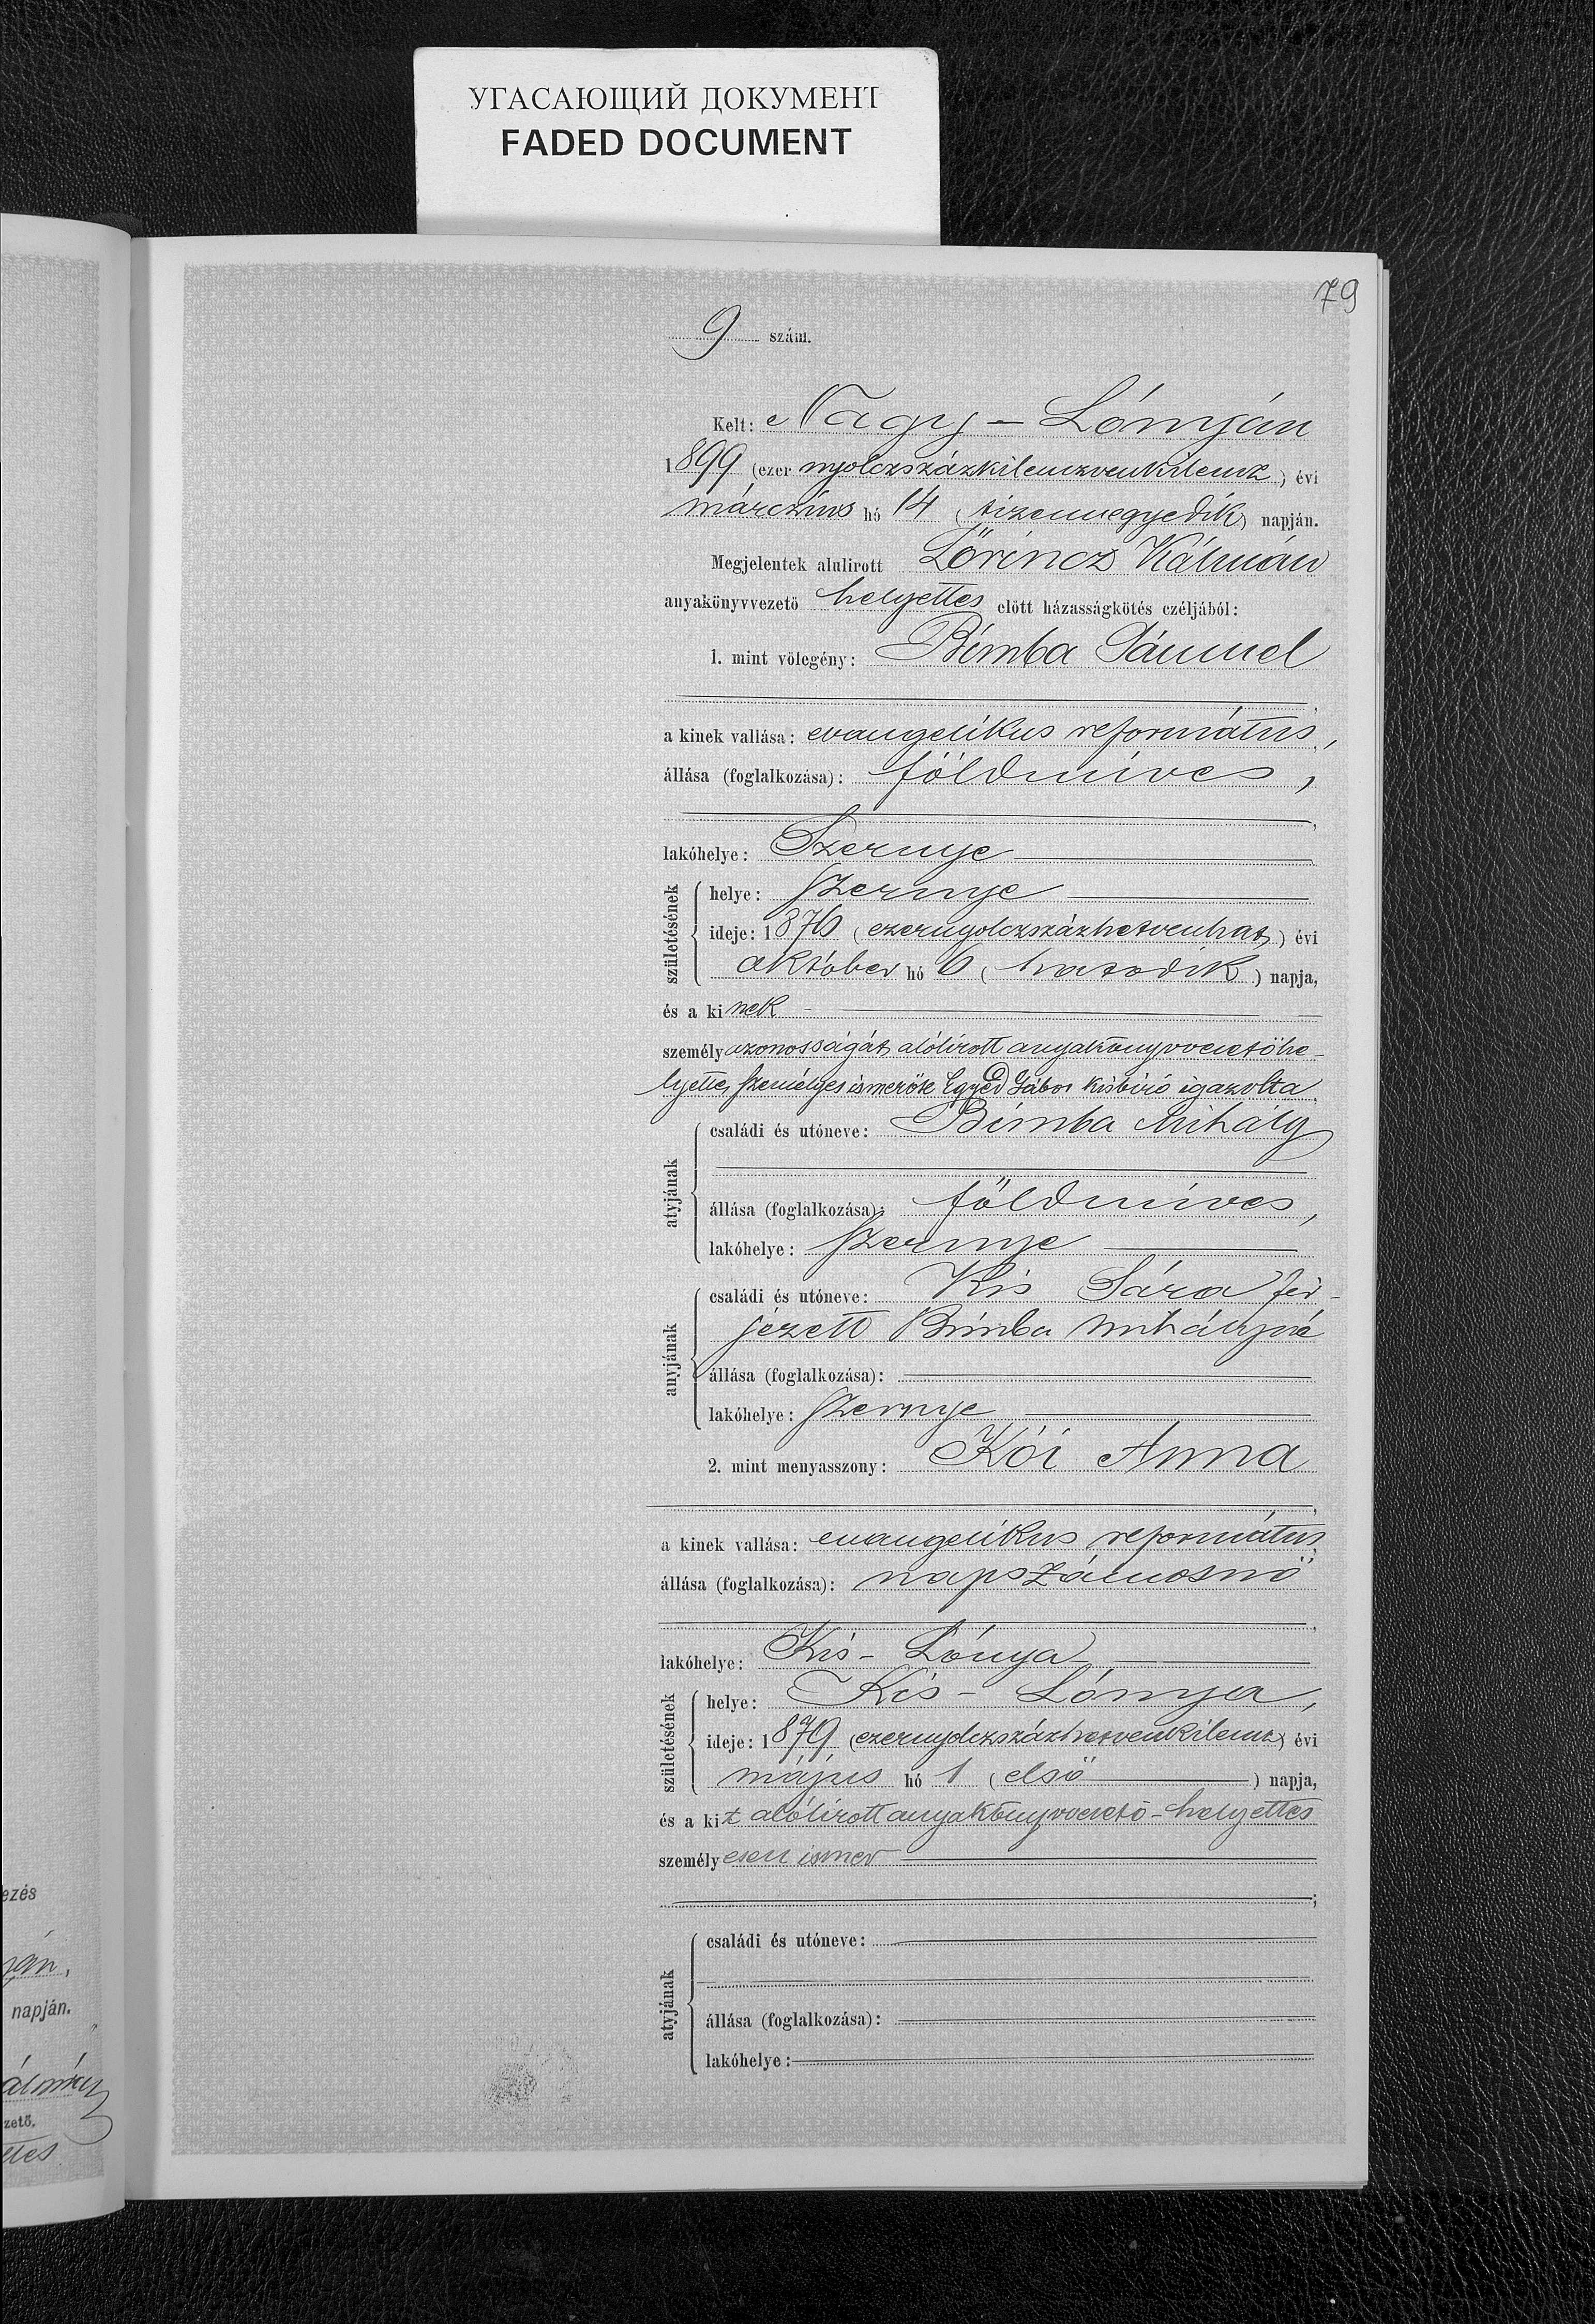 УГАСАЮЩИЙ ДОКУМЕНТ
FADED DOCUMENT
79
9 szám.
Kelt: Nagy-Lónyán
1899 (ezer nyolczszázkilenczvenkilencz) évi
márczius hó 14 (tizennegyedik) napján.
Megjelentek alulirott Lőrincz Kálmán
anyakönyvvezető helyettes előtt házasságkötés czéljából:
1. mint vőlegény: Bimba Sámuel
a kinek vallása: evangelikus református,
állása (foglalkozása): földmíves,
lakóhelye: Szernye
születésének
helye: Szernye
ideje: 1876 (ezernyolczszázhetvenhat) évi
október hó 6 (hatodik) napja,
és a kinek
személyazonosságát alólirott anyakönyvvezetőhe-
lyettes személyes ismerőse Egyed Gábor kisbíró igazolta
atyjának
családi és utóneve: Bimba Mihály
állása (foglalkozása): földmíves,
lakóhelye: Szernye
anyjának
családi és utóneve: Kis Sára fér-
jezett Bimba Mihályné
állása (foglalkozása):
lakóhelye: Szernye
2. mint menyasszony: Kói Anna
a kinek vallása: evangelikus református,
állása (foglalkozása): napszámosnő
lakóhelye: Kis-Lónya
születésének
helye: Kis-Lónya,
ideje: 1879 (ezernyolczszázhetvenkilencz) évi
május hó 1 (első) napja,
és a kit alólirott anyakönyvvezető-helyettes
személyesen ismer
atyjának
családi és utóneve:
állása (foglalkozása):
lakóhelye:
ezés
napján.
zető.
ttes